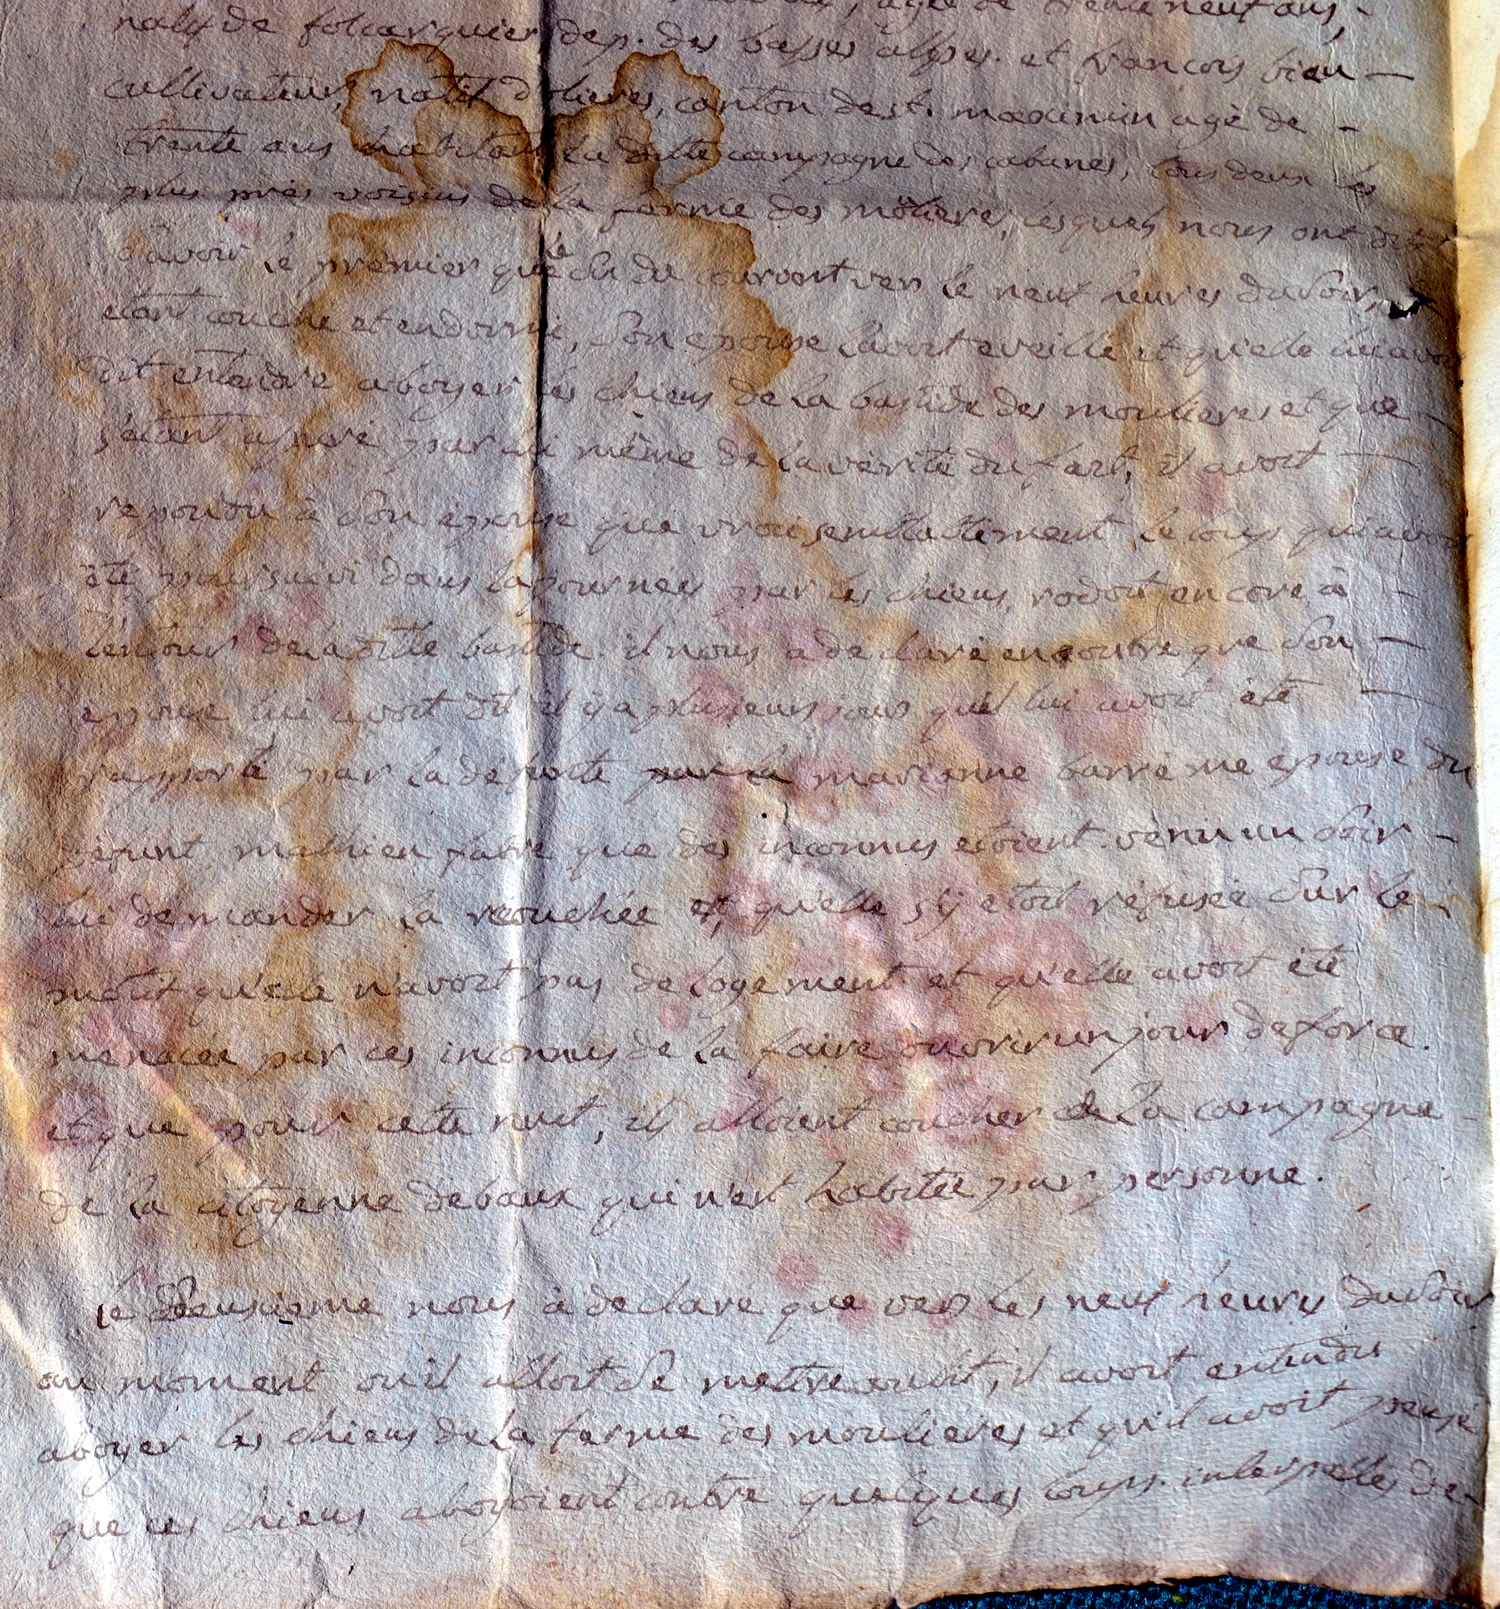 agée de trente neuf ans,
natif de folcarquier dep. des basses alpes. et francois
cultivateur, natif d'olieres, canton de st. maximin agé de
trente ans habitant la dite campagne des cabanes, tous deux les
plus près voisins de la ferme des molière, lesquels nous ont dit
savoir le premier que le du courant ver le neuf heures du soir,
etant couché et endormi, son epouse l'avoit eveillé et qu'elle lui avoit
dit entendre aboyer les chiens de la bastide des moulieres et que
s'etant assuré par lui même de la verité du fait, il avoit
repondu à son epouse que vraisemblablement le loup qui avoit
été poursuivi dans la journée par les chiens, rodoit encore à
l'entour de la dite bastide. il nous a declaré en outre que son
epouse lui avoit dit il y a plusieurs jours qu'il lui avoit été
rapporté par la dé par la marianne barreme epouse du
défunt mathieu fabre que des inconnus etoient venu un soir
lui demander la couchée et, qu'elle s'y etoit réfusée sur le
motif qu'elle n'avoit pas de logement et qu'elle avoit été
menacée par ces inconnus de la faire ouvrir un jour de force.
et que pour cete nuit, ils alloient coucher de la campagne
de la citoyenne debaux qui n'est habitée par personne.
le deuxieme nous à declaré que vers les neuf heures du soir
au moment ou il alloit se mettre au lit, il avoit entendu
aboyer les chiens de la ferme des moulieres et qu'il avoit pensé
que ces chiens aboyoient contre quelques loups. interpellés de